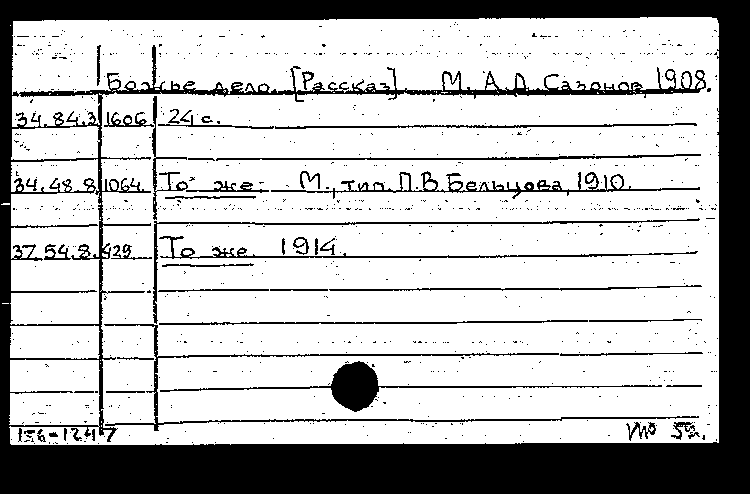 Божье дело. [Рассказ]. М., А.Д. Сазонов, 1908.
34.84.3.1606. 24 с.
34.48.8.1064. То же. М., тип. П.В. Бельцова, 1910.
37.54.8.429 То же. 1914.
156-1247